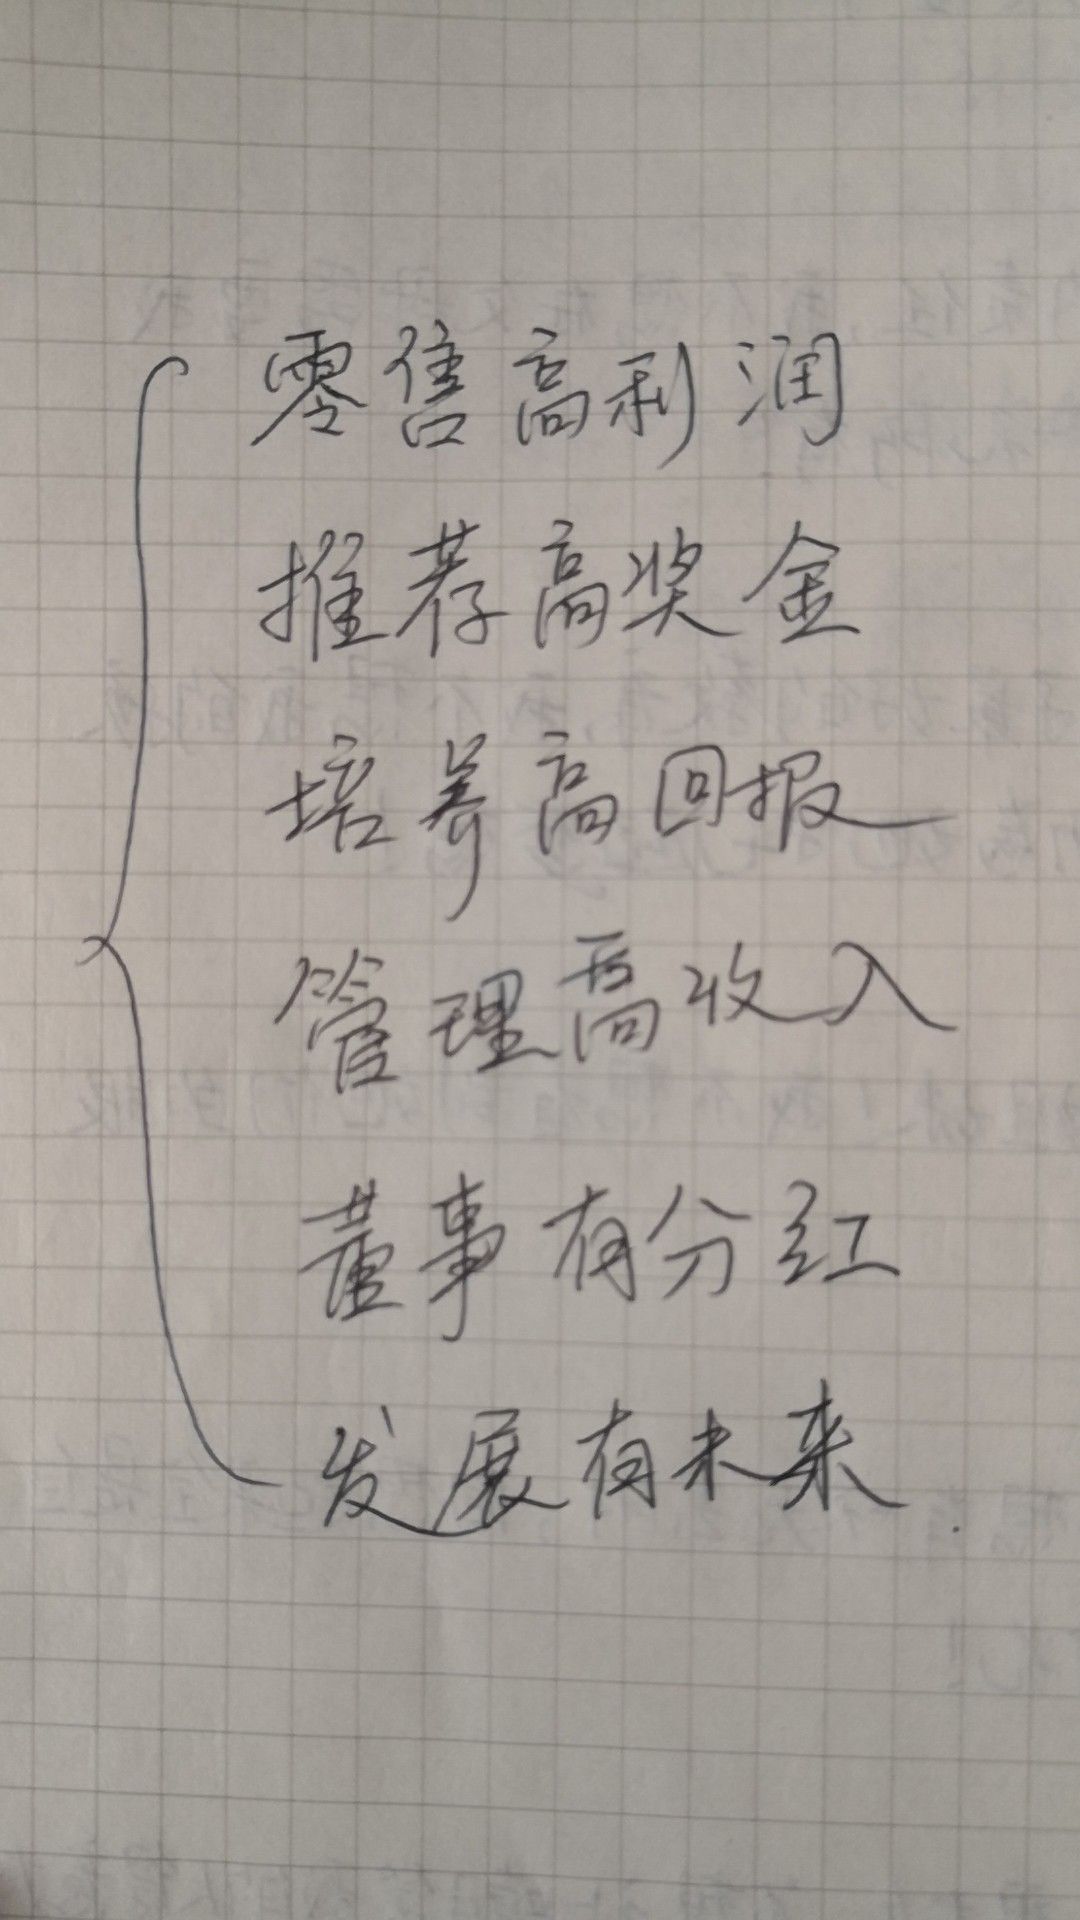 零售高利润
推荐高奖金
培养高回报
管理高收入
董事有分红
发展有未来.